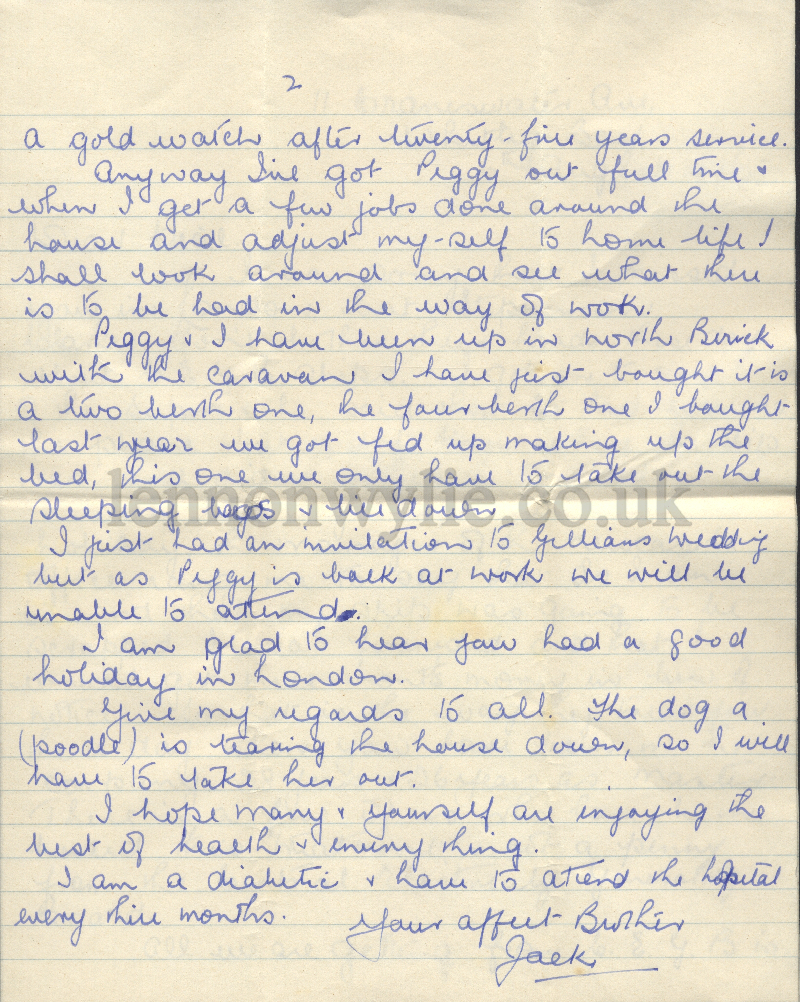 2
a gold watch after twenty-five years service.
Anyway I've got Peggy out full time &
when I get a few jobs done around the
house and adjust my-self to home life I
shall look around and see what there
is to be had in the way of work.
Peggy & I have been up in north Berwick
with the caravan I have just bought it is
a two berth one, the four berth one I bought
last year we got fed up making up the
bed, this one we only have to take out the
sleeping bags & lie down
lennonwylie.co.uk
I just had an invitation to Gillians wedding
but as Peggy is back at work we will be
unable to attend.
I am glad to hear you had a good
holiday in London.
Give my regards to all. The dog a
(poodle) is tearing the house down, so I will
have to take her out.
I hope Mary & yourself are injoying the
best of health & every thing.
I am a diabetic & have to attend the hospital
every three months.
Your affect Brother
Jack